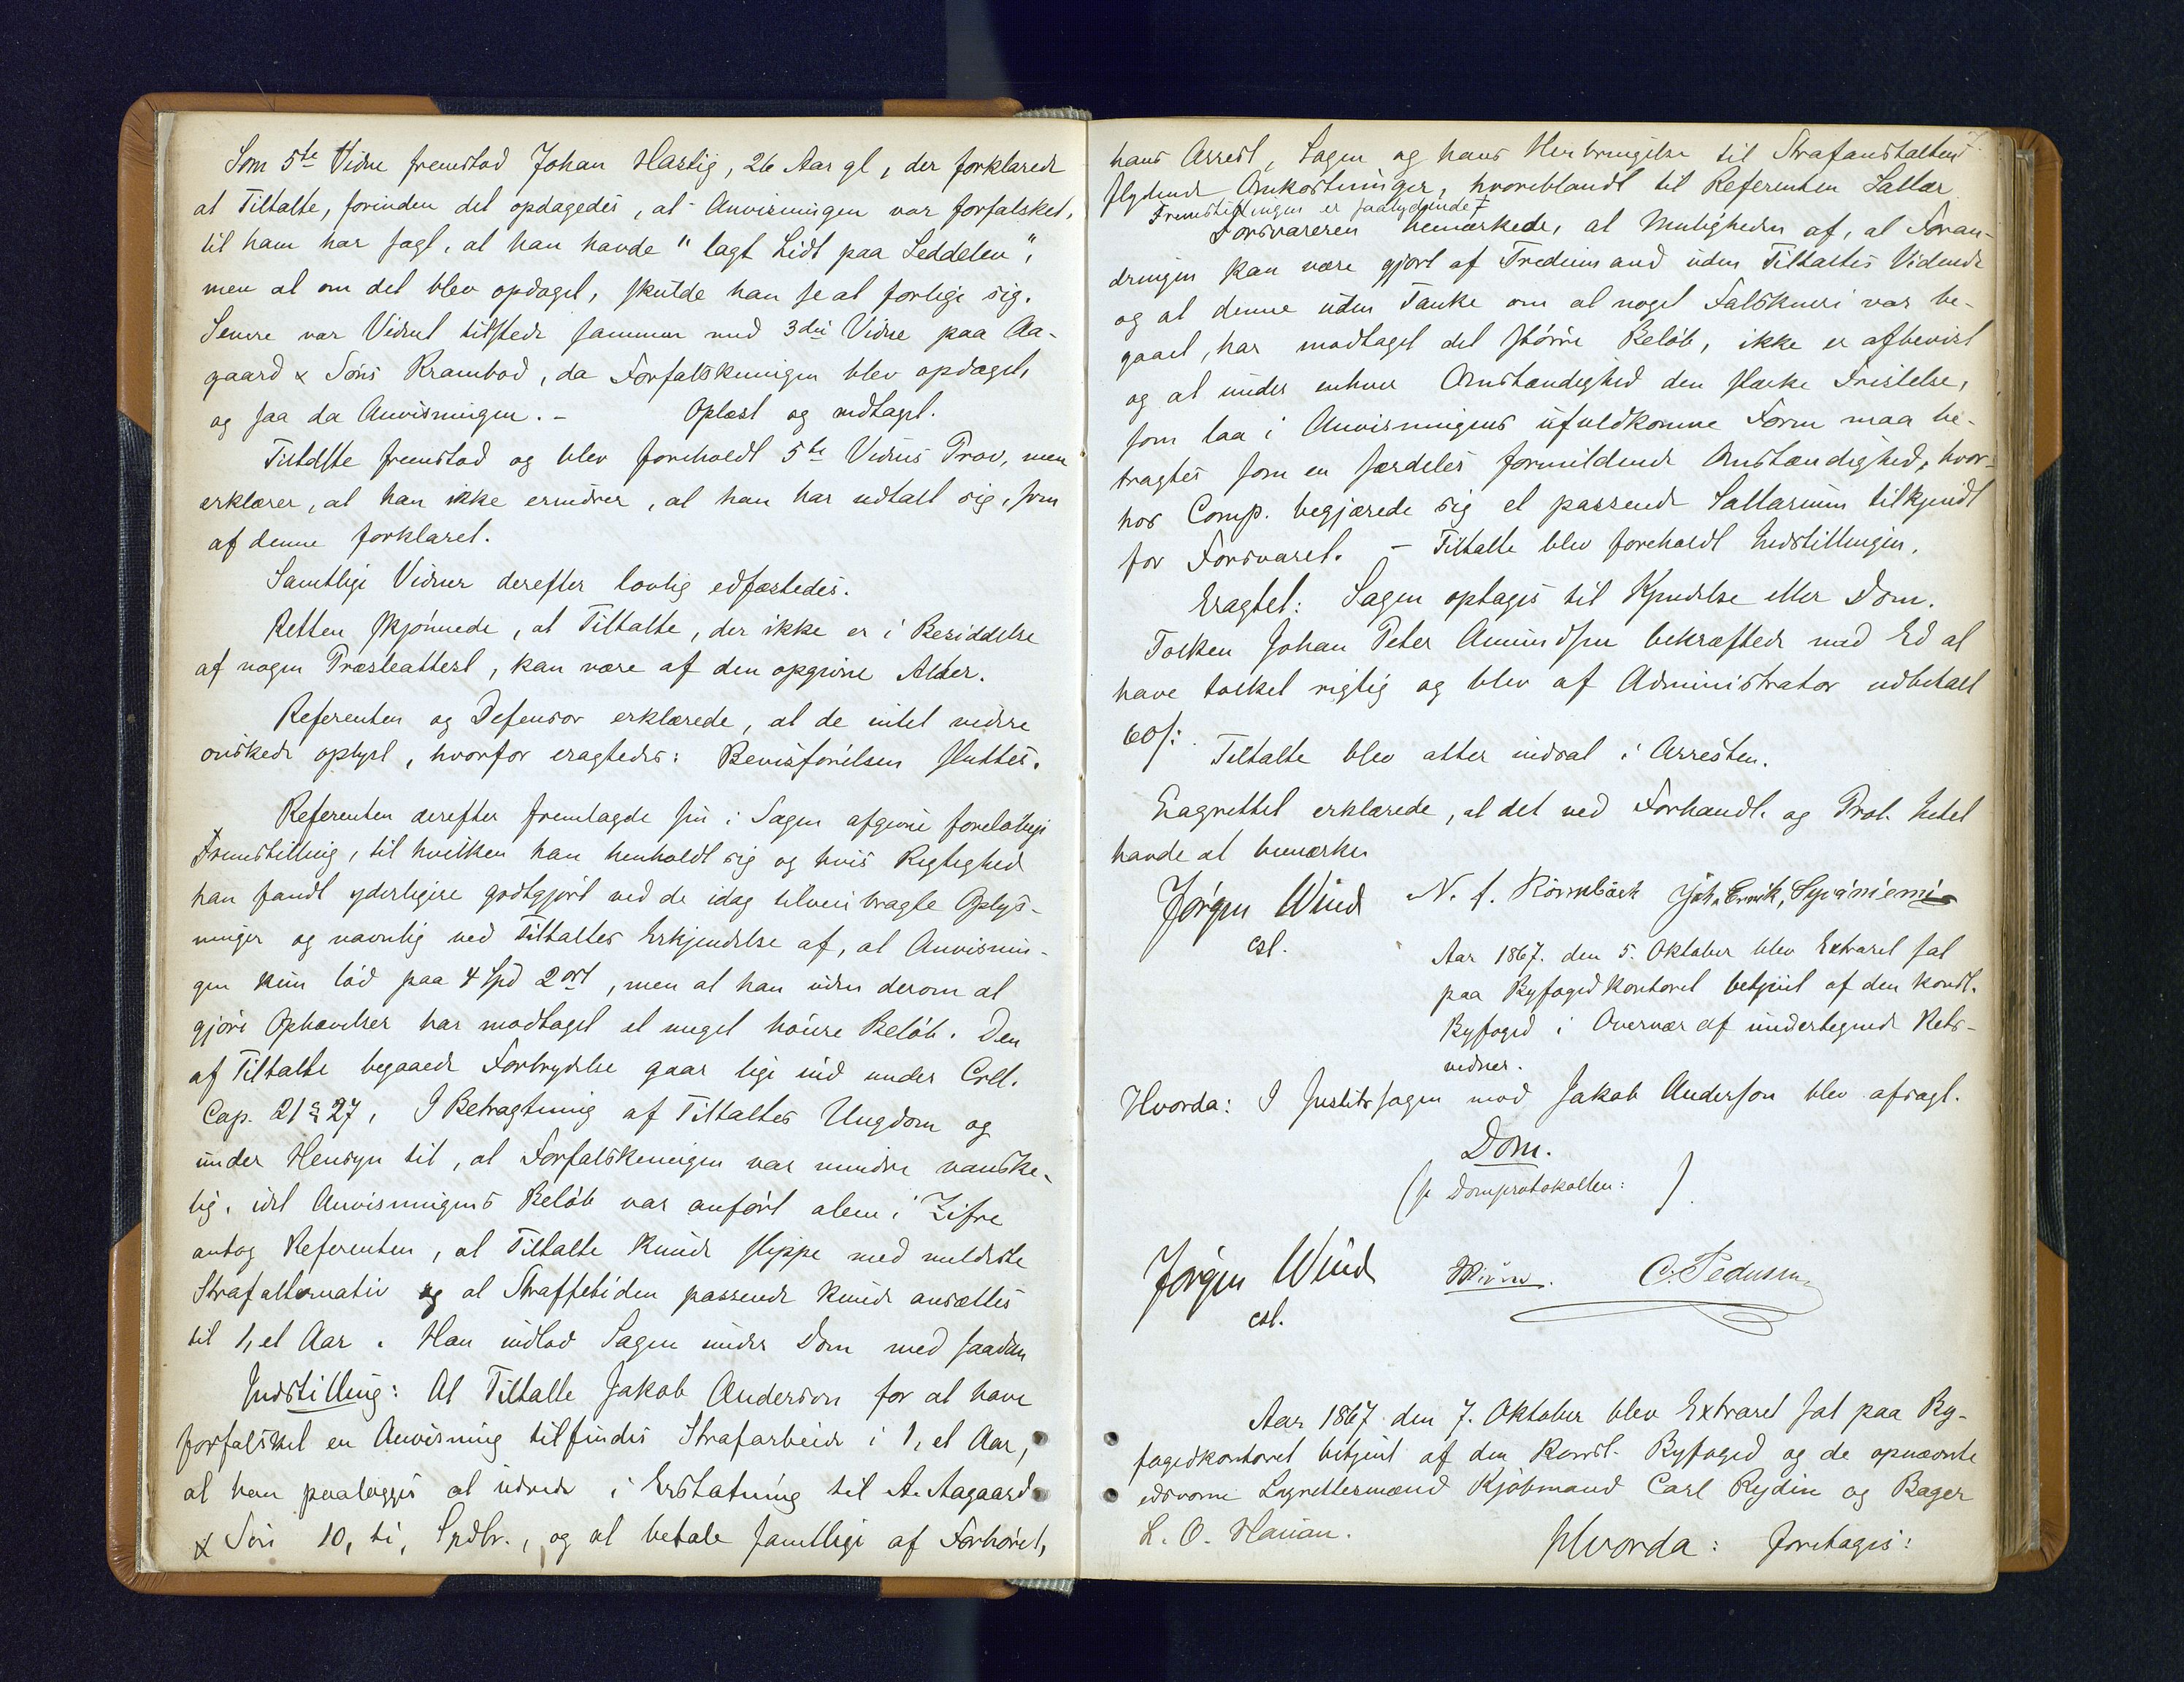 Som 5te Vidne fremstod Johan Hastig, 26 Aar gl, der forklarede
at Tiltalte, forinden det opdagedes, at Anvisningen var forfalsket,
til ham har sagt, at han havde "lagt Lidt paa Seddelen",
men at om det blev opdaget, skulde han se at forlige sig.
Senere var Vidnet tilstede sammen med 3die Vidne paa Aa-
gaard & Söns Krambod, da Forfalskningen blev opdaget,
og saa da Anvisningen. - Oplæst og vedtaget.
Tiltalte fremstod og blev foreholdt 5te Vidnes Prov, men
erklærer, at han ikke erindrer, at han har udtalt sig, som
af denne forklaret.
Samtlige Vidner derefter lovlig edfæstedes.
Retten skjönnede, at Tiltalte, der ikke er i Besiddelse
af nogen Præsteattest, kan være af den opgivne Alder.
Referenten og Defensor erklærede, at de intet videre
önskede oplyst, hvorfor eragtedes: Bevisförelsen sluttes.
Referenten derefter fremlagde sin i Sagen afgivne forelöbige
Fremstilling, til hvilken han henholdt sig og hvis Rigtighed
han fandt yderligere godtgjort ved de idag tilveiebragte Oplys-
ninger og navnlig ved Tiltaltes Erkjendelse af, at Anvisnin-
gen kun löd paa 4 Spd 2 ort, men at han uden derom at
gjöre Ophævelser har modtaget et meget höiere Belöb. Den
af Tiltalte begaaede Forbrydelse gaar lige ind under Crl.
Cap. 21 § 27, I Betragtning af Tiltaltes Ungdom og
under Hensyn til, at Forfalskningen var mindre vanske-
lig, idet Anvisningens Belöb var anfört alene i Zifre
antog Referenten, at Tiltalte kunde slippe med mildeste
Strafalternativ og at Straffetiden passende kunde ansættes
til 1, et Aar. Han indlod Sagen under Dom med saadan
Indstilling: At Tiltalte Jakob Anderson for at have
forfalsket en Anvisning tilfindes Strafarbeide i 1, et Aar,
at han paalægges at udrede i Erstatning til A. Aagaard
& Sön 10, ti, Spdlr., og at betale samtlige af Forhöret,
hans Arrest, Sagen og hans Henbringelse til Strafanstalten
flydende Omkostninger, hvoriblandt til Referenten Sallær
Fremstillingen er saalydende
Forsvareren bemærkede, at Muligheden af, at Foran-
dringen kan være gjort af Trediemand uden Tiltaltes Vidende
og at denne uden Tanke om at noget Falskneri var be-
gaaet, har modtaget det större Belöb, ikke er afbevist
og at under enhver Omstændighed den stærke Fristelse,
som laa i Anvisningens ufuldkomne Form maa be-
tragtes som en særdeles formildende Omstændighed, hvor-
hos Comp. begjærede sig et passende Sallarium tilkjendt
for Forsvaret. - Tiltalte blev foreholdt Indstillingen.
Eragtet: Sagen optages til Kjendelse eller Dom.
Tolken Johan Peter Amundsen bekræftede med Ed at
have tolket rigtig og blev af Administrator udbetalt
60 s:
Tiltalte blev atter indsat i Arresten.
Lagrettet erklærede, at det ved Forhandl. og Prot. Intet
havde at bemærke
Jörgen Wind N. A. Joh. Erik,
cst.
Aar 1867. den 5. Oktober blev Extraret sat
paa Byfogedkontoret betjent af den konst.
Byfoged i Overvær af undertegnede Rets-
vidner.
Hvorda: I Justitssagen mod Jakob Anderson blev afsagt.
Dom.
(se Domprotokollen: )
Jörgen Wind C. Pedersen
cst.
Aar 1867 den 7. Oktober blev Extraret sat paa By-
fogedkontoret betjent af den Konst. Byfoged og de opnævnte
edsvorne Lagrettesmænd Kjöbmand Carl Rydin og Bager
L. O. Hanan.
Hvorda: foretages: